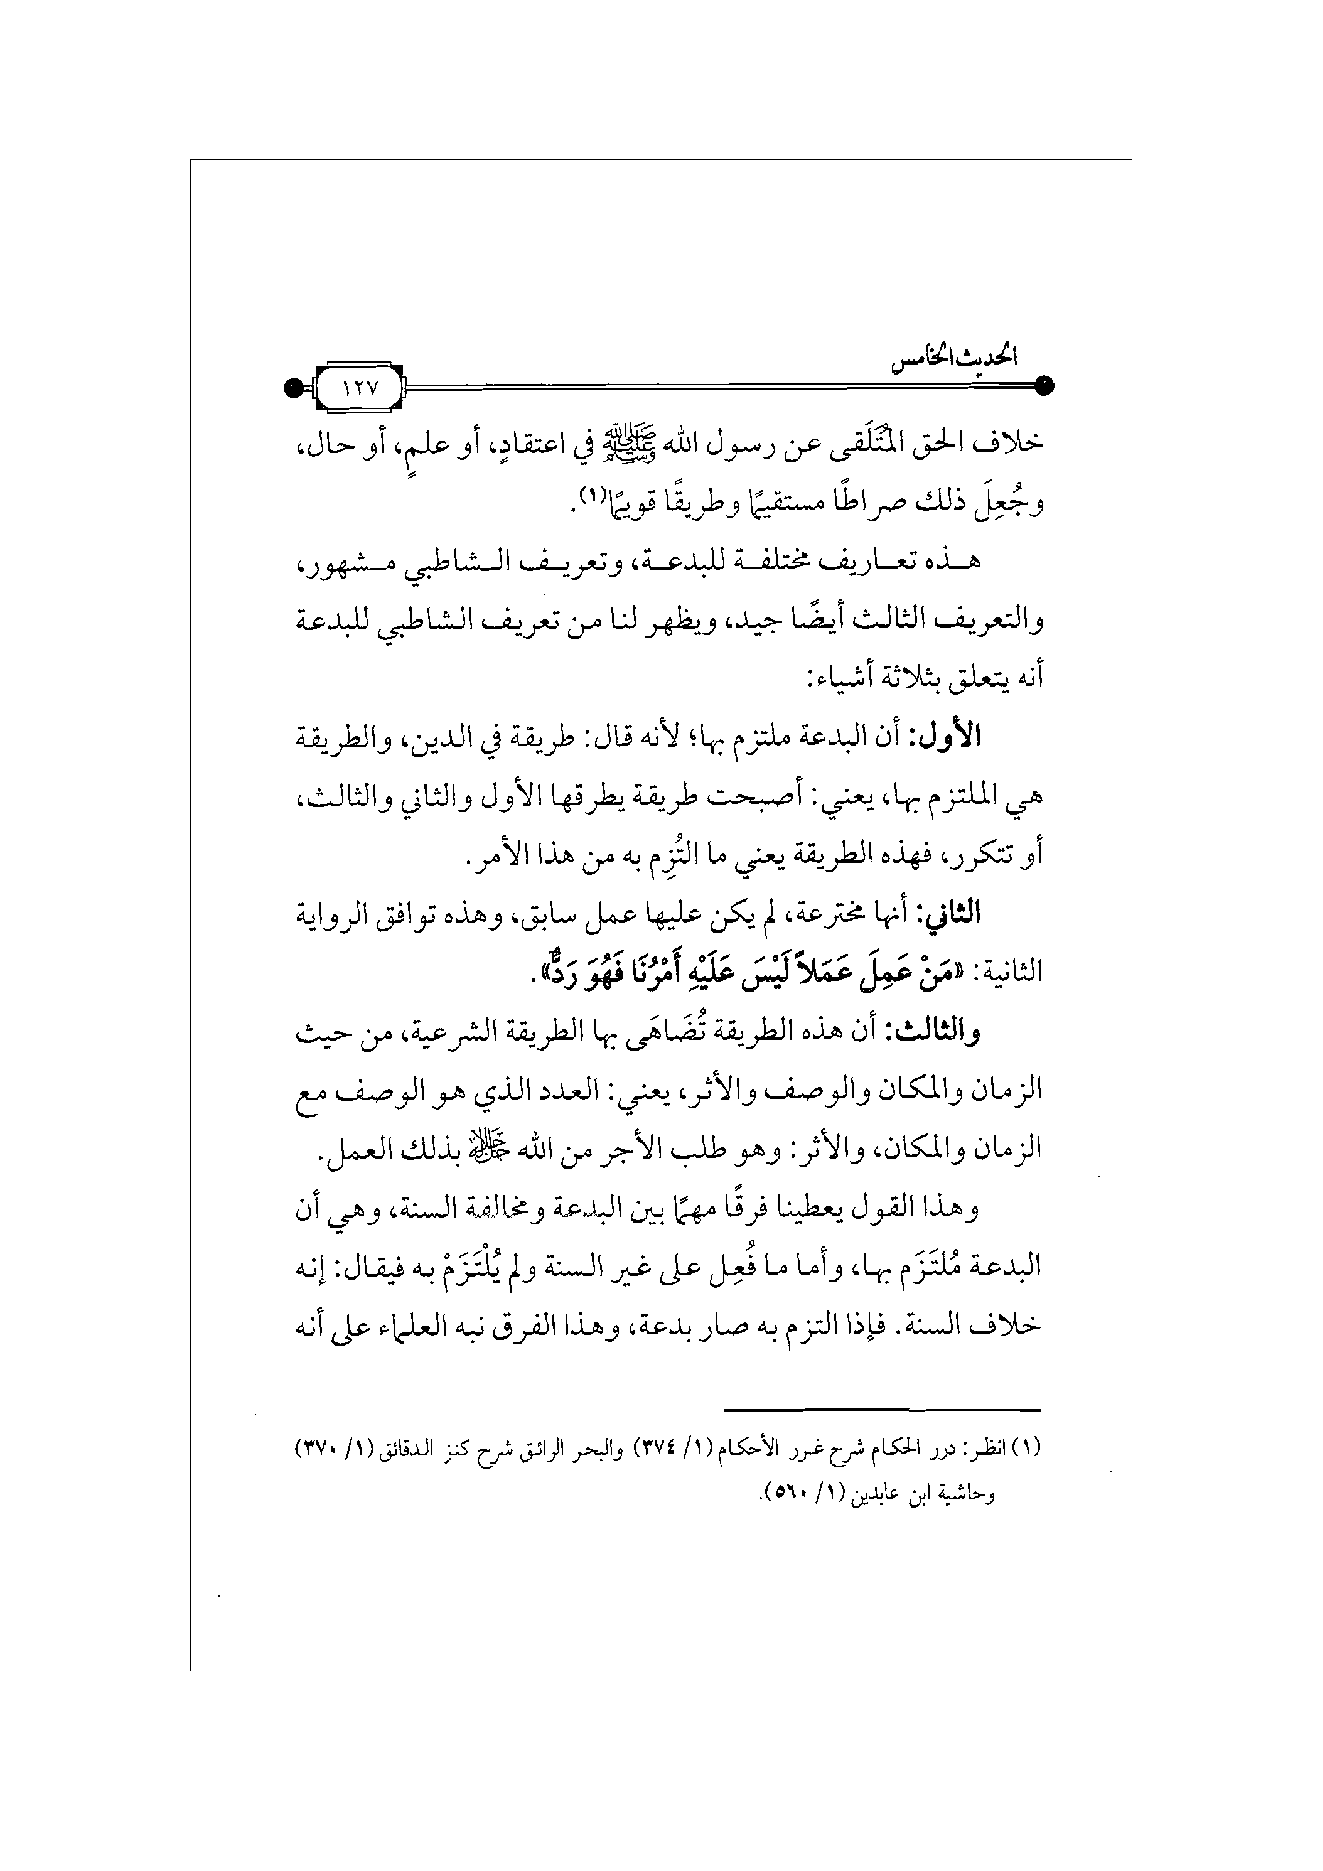 الحديث الخامس
١٢٧
خلاف الحق المُتَلَقى عن رسول الله ﷺ في اعتقادٍ، أو علمٍ، أو حال،
وجُعِلَ ذلك صراطًا مستقيمًا وطريقًا قويمًا(١).
هذه تعاريف مختلفة للبدعة، وتعريف الشاطبي مشهور،
والتعريف الثالث أيضًا جيد، ويظهر لنا من تعريف الشاطبي للبدعة
أنه يتعلق بثلاثة أشياء:
الأول: أن البدعة ملتزم بها؛ لأنه قال: طريقة في الدين، والطريقة
هي الملتزم بها، يعني: أصبحت طريقة يطرقها الأول والثاني والثالث،
أو تتكرر، فهذه الطريقة يعني ما التُزِم به من هذا الأمر.
الثاني: أنها مخترعة، لم يكن عليها عمل سابق، وهذه توافق الرواية
الثانية: «مَنْ عَمِلَ عَمَلاً لَيْسَ عَلَيْهِ أَمْرُنَا فَهُوَ رَدٌّ».
والثالث: أن هذه الطريقة تُضَاهَى بها الطريقة الشرعية، من حيث
الزمان والمكان والوصف والأثر، يعني: العدد الذي هو الوصف مع
الزمان والمكان، والأثر: وهو طلب الأجر من الله ﷻ بذلك العمل.
وهذا القول يعطينا فرقًا مهمًا بين البدعة ومخالفة السنة، وهي أن
البدعة مُلتَزَم بها، وأما ما فُعِل على غير السنة ولم يُلْتَزَمْ به فيقال: إنه
خلاف السنة. فإذا التزم به صار بدعة، وهذا الفرق نبه العلماء على أنه
(١) انظر: درر الحكام شرح غرر الأحكام (١/ ٣٧٤) والبحر الرائق شرح كنز الدقائق (١/ ٣٧٠)
وحاشية ابن عابدين (١/ ٥٦٠).